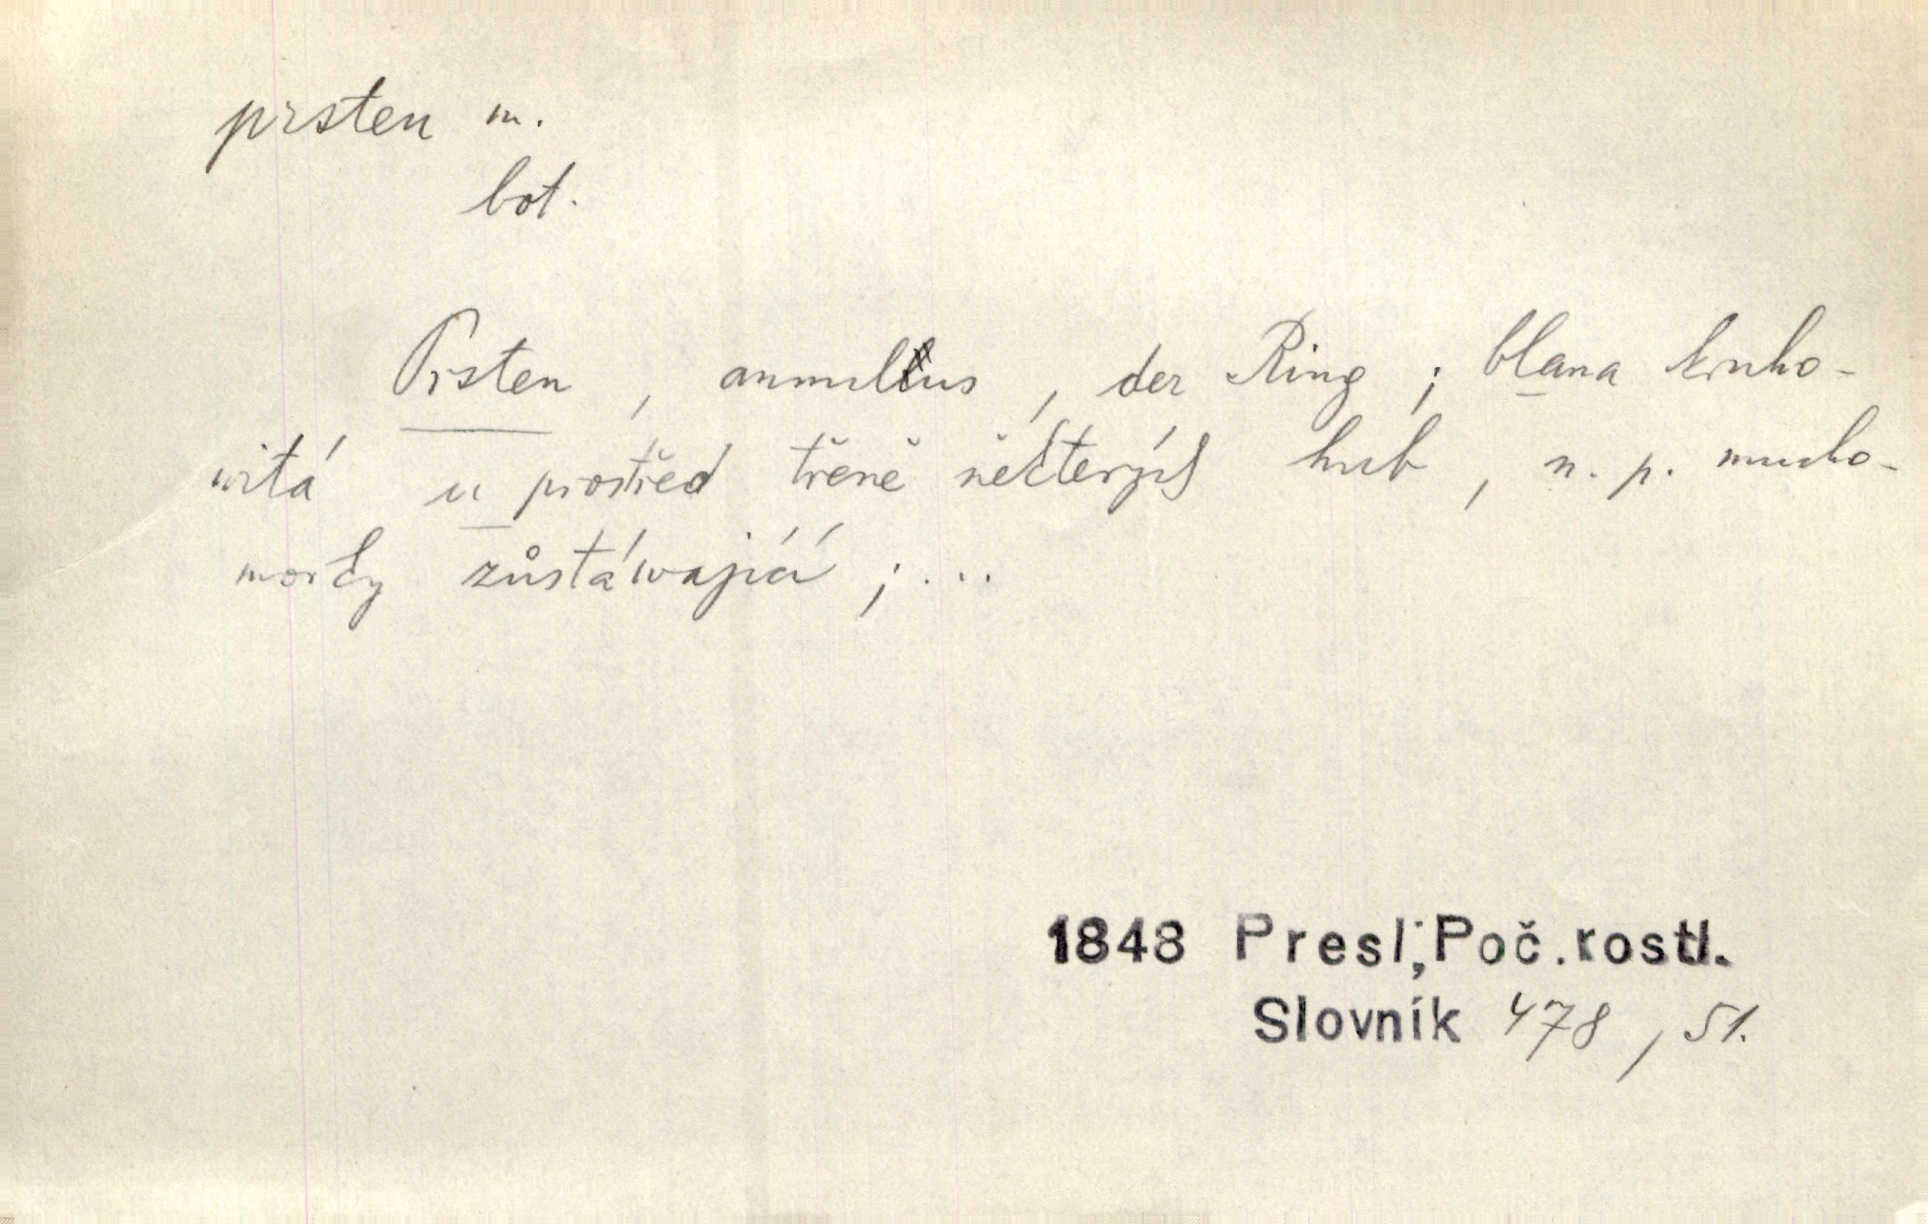 prsten m.
bot.
Prsten, annulus, der Ring; blana kruho-
witá u prostřed třeně některých hub, n. p. mucho-
morky zůstáwající;...
1848 Presl, Poč. rostl.
Slovník 478, 51.